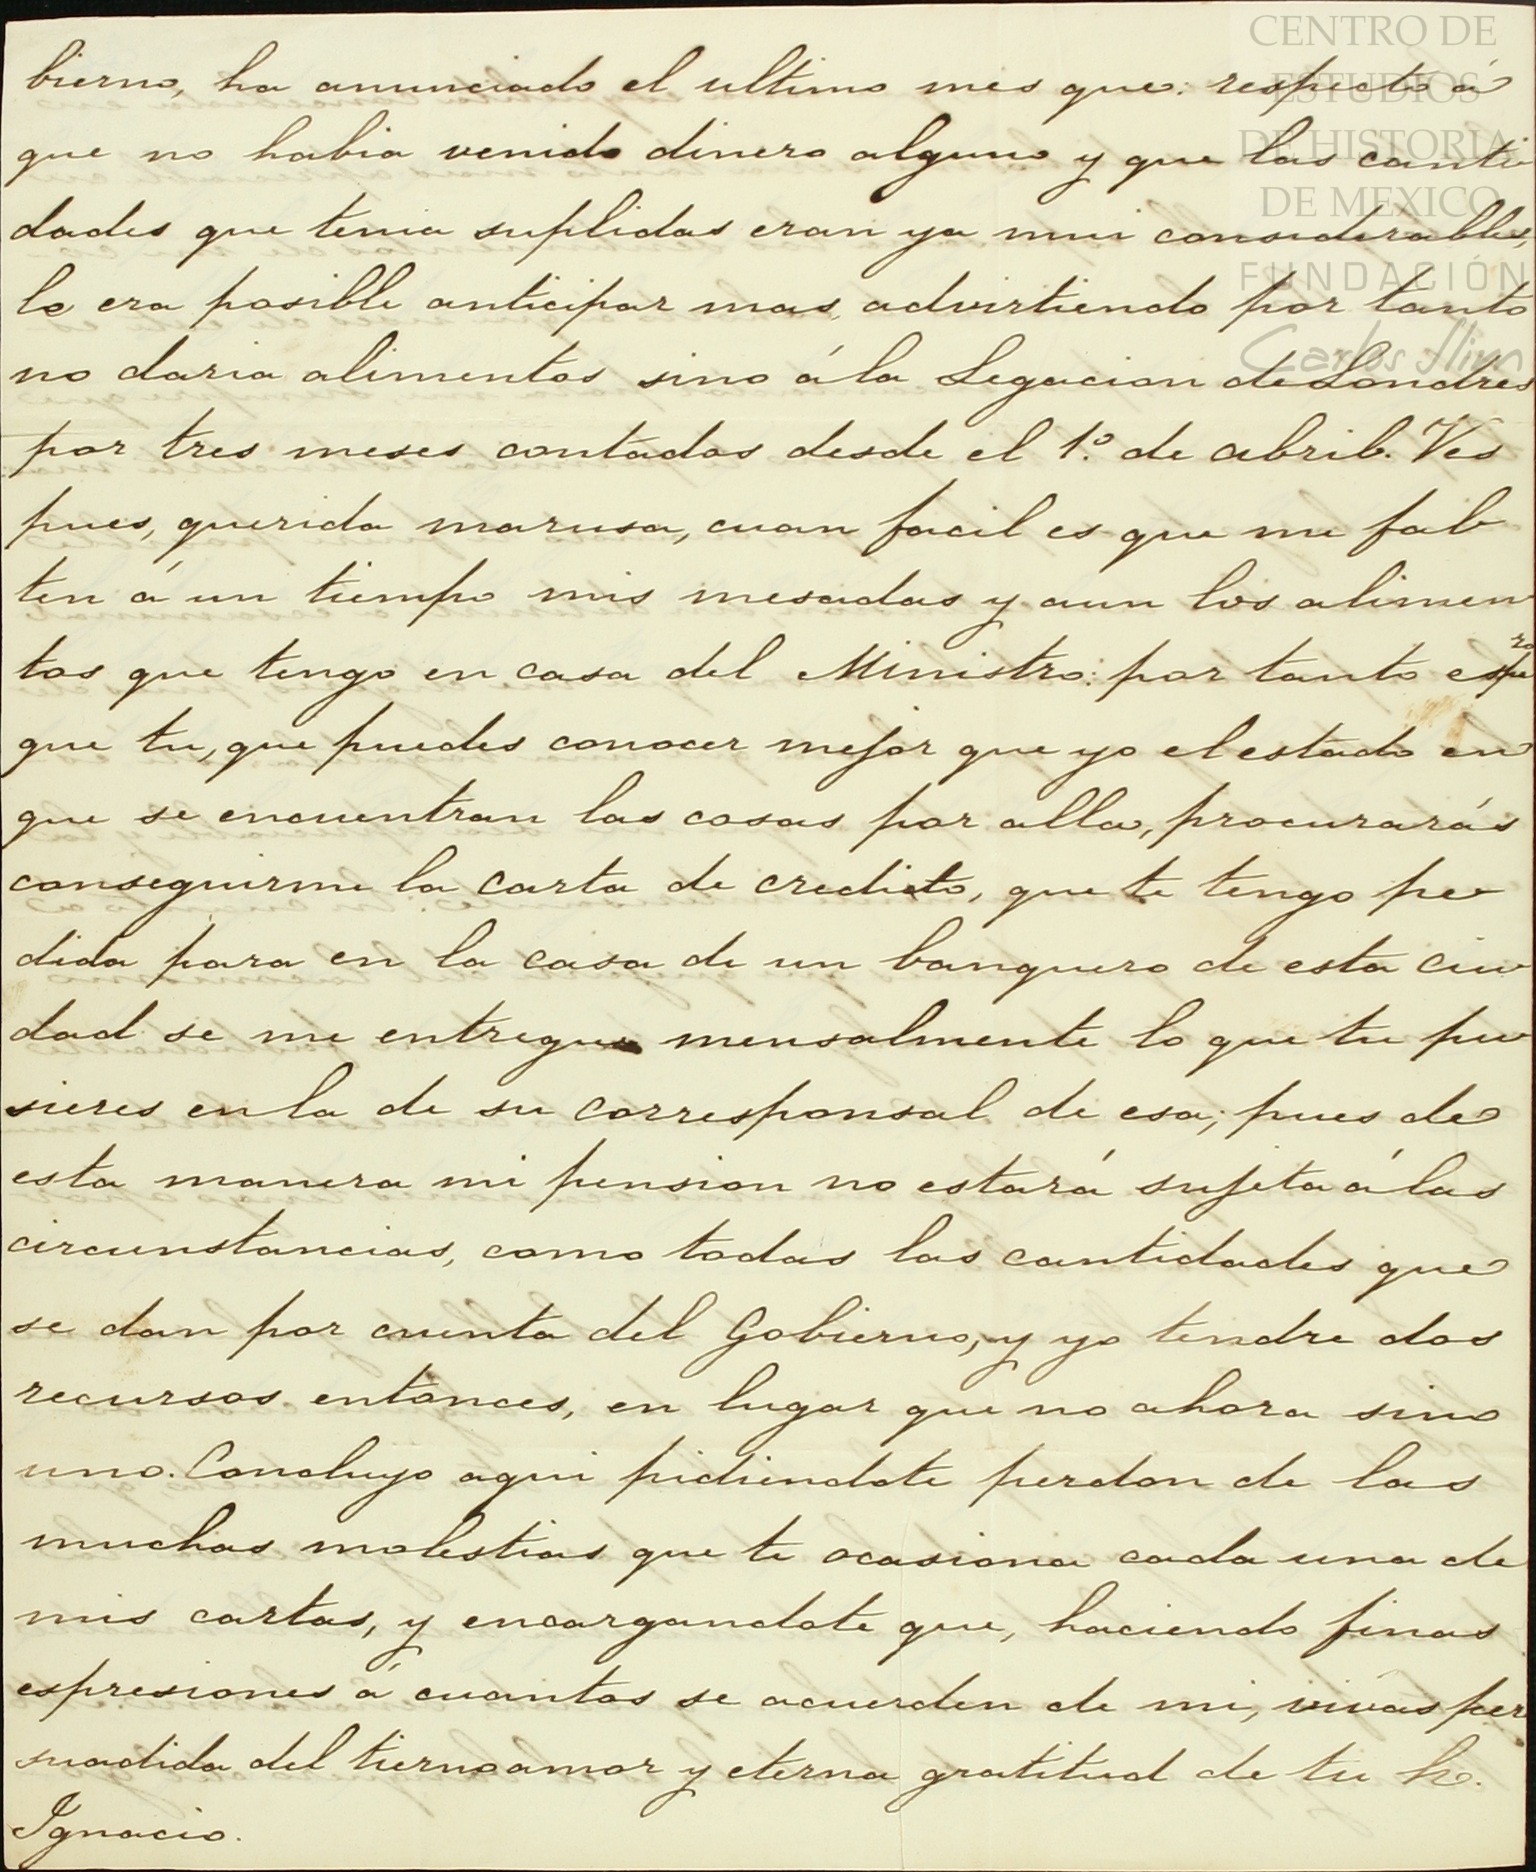 CENTRO DE
ESTUDIOS
DE HISTORIA
DE MEXICO
FUNDACIÓN
Carlos Slim
bierno, ha anunciado el ultimo mes que: respecto á
que no habia venido dinero alguno y que las canti
dades que tenia suplidas eran ya mui considerables,
le era posible anticipar mas, advirtiendo por tanto
no daria alimentos sino á la Legacion de Londres
por tres meses contados desde el 1.º de abril. Ves
pues, querida marusa, cuan facil es que me fal
ten á un tiempo mis mesadas y aun los alimen
tos que tengo en casa del Ministro: por tanto espero
que tu, que puedes conocer mejor que yo el estado en
que se encuentran las cosas por alla, procurarás
conseguirme la carta de credito, que te tengo pe
dida para en la casa de un banquero de esta ciu
dad se me entregue mensalmente lo que tu pu
sieres en la de su corresponsal de esa; pues de
esta manera mi pension no estará sujeta á las
circunstancias, como todas las cantidades que
se dan por cuenta del Gobierno, y yo tendre dos
recursos entonces, en lugar que no ahora sino
uno. Concluyo aqui pidiendote perdon de las
muchas molestias que te ocasiona cada una de
mis cartas, y encargandote que, haciendo finas
espresiones á cuantos se acuerden de mi, vivas per
suadida del tierno amor y eterna gratitud de tu h.
Ignacio.